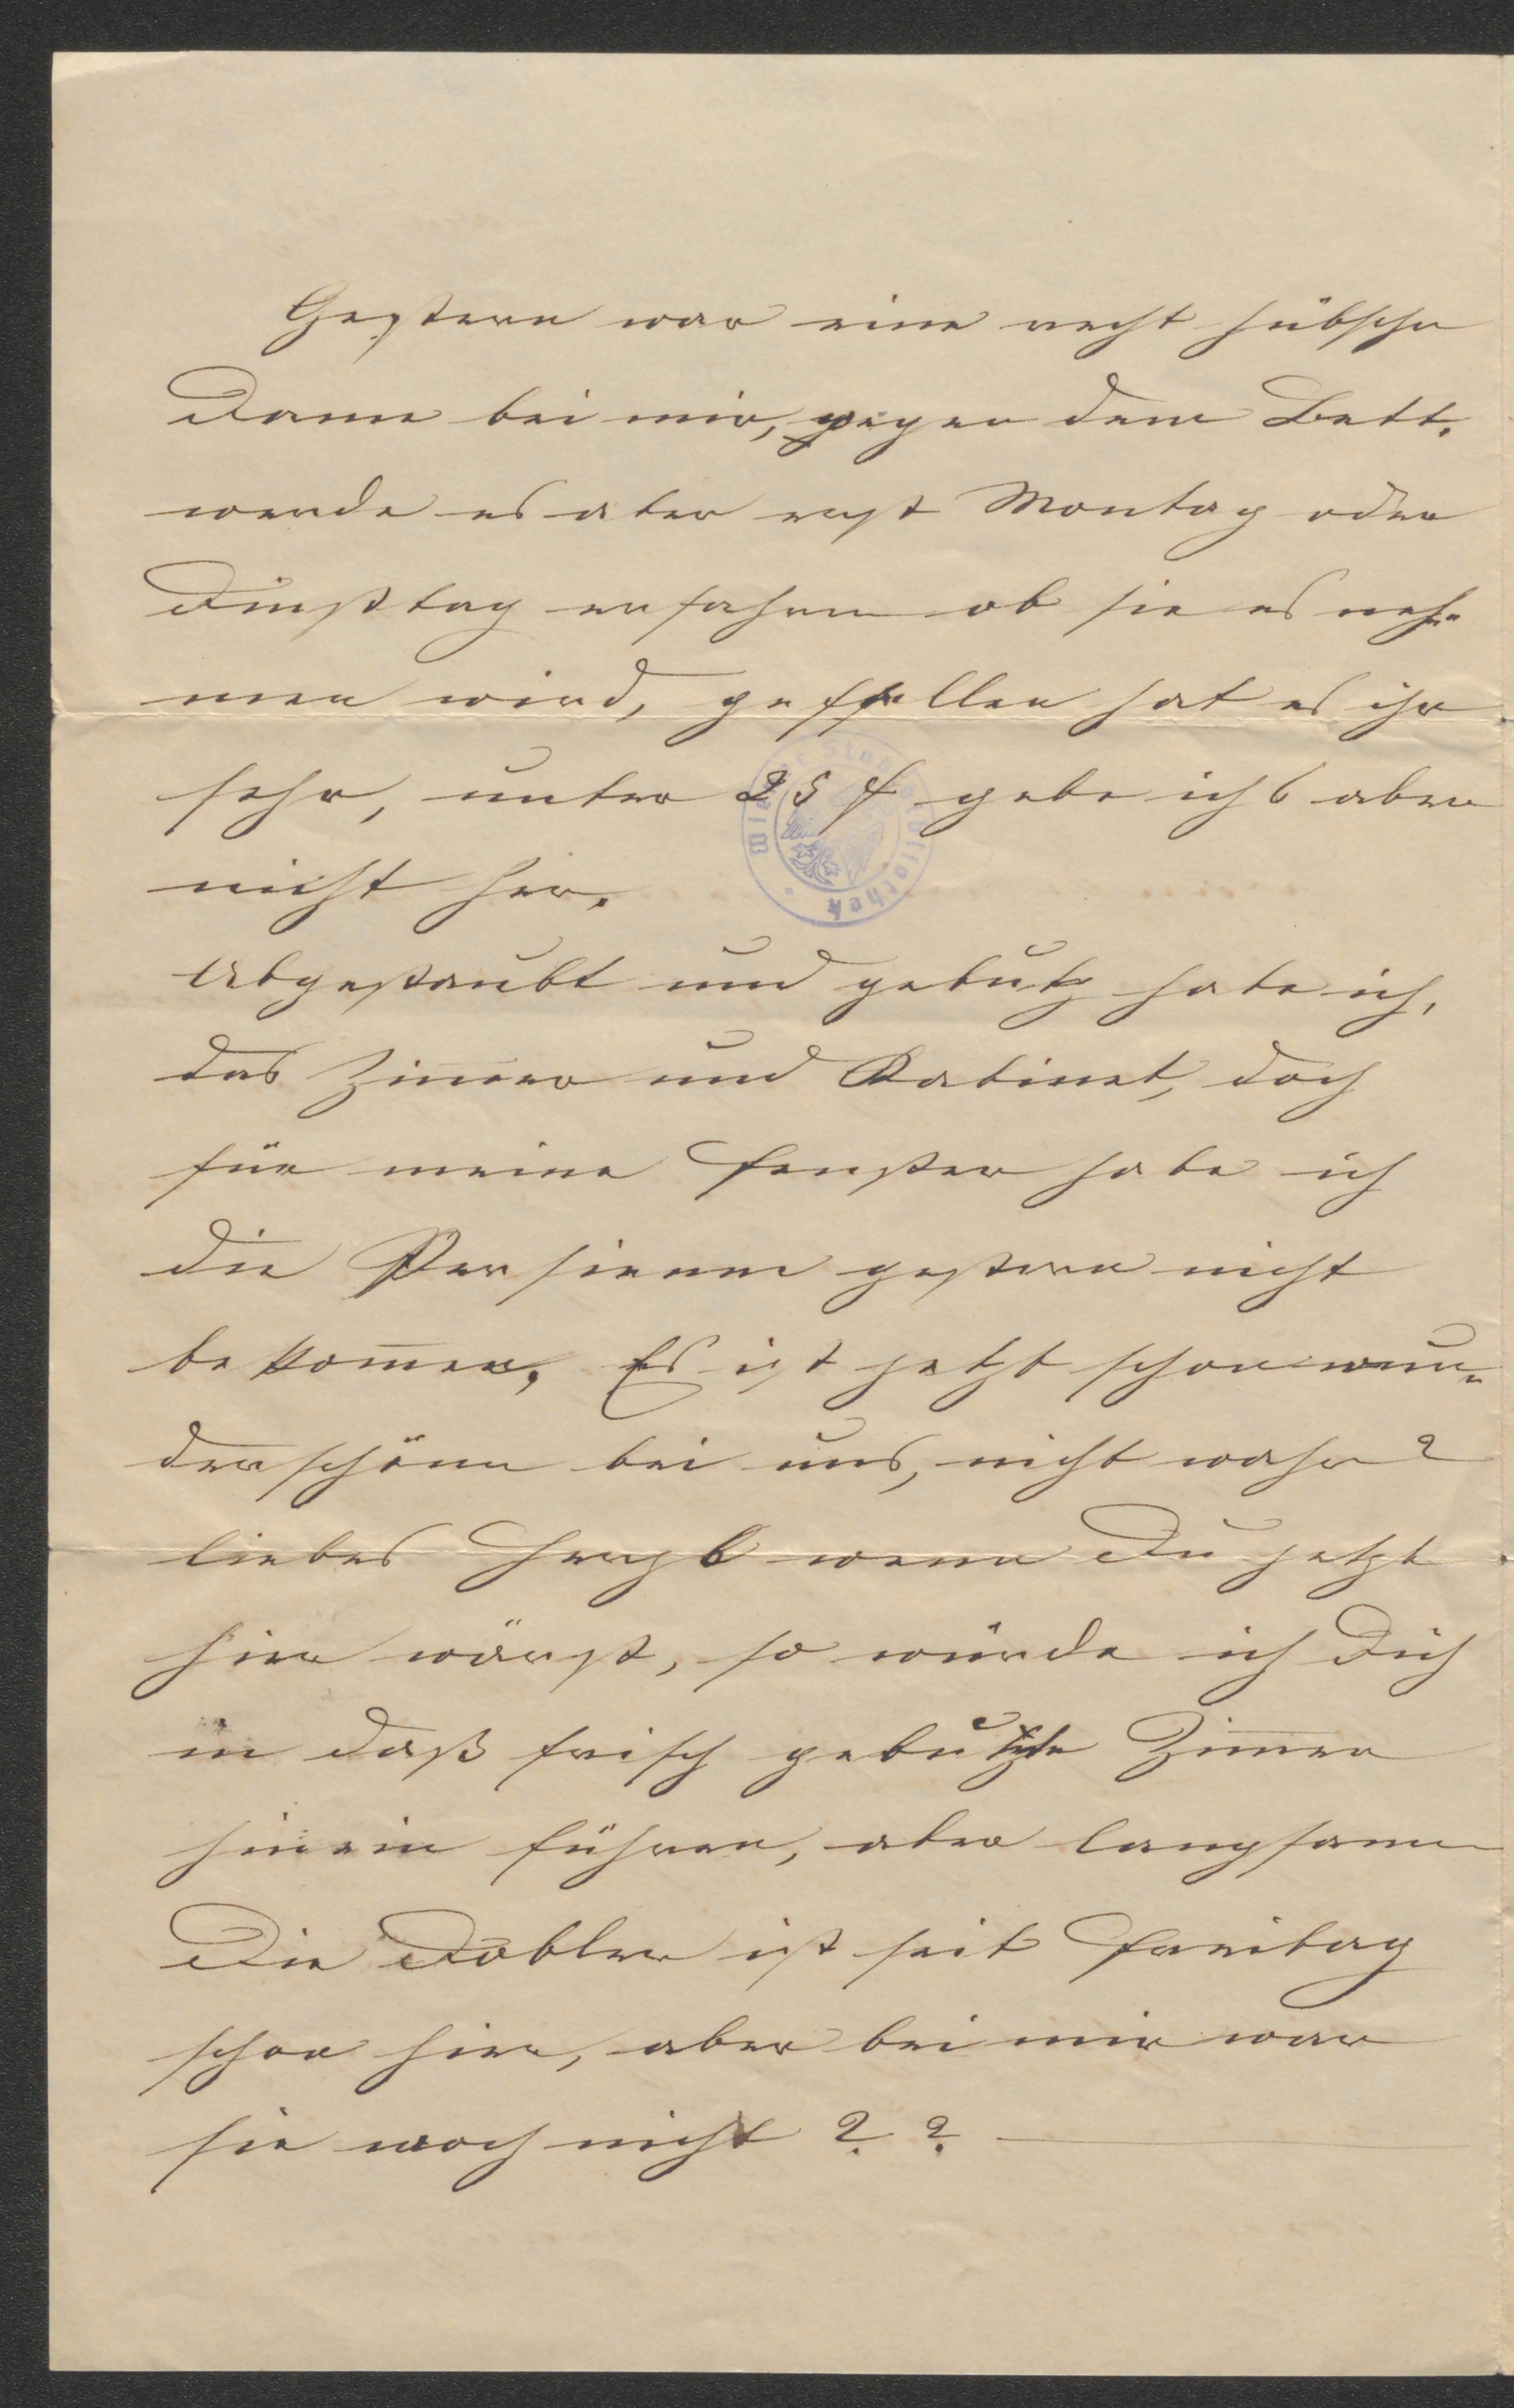 Gestern war eine recht hübsche
Dame bei mir, wegen dem Bett,
werde es aber erst Montag oder
Dinßtag erfahren ob sie es neh-
men wird, gefallen hat es ihr
sehr, unter 25 f gebe ichs aber
nicht her.
Abgestaubt und gebutz habe ich,
das Zim̅er und Kabinet, doch
für meine Fenster habe ich
die Persienen gestern nicht
bekom̅en. Es ist jetzt schon wun-
derschönn bei uns, nicht wahr?
liebes Herzl wenn Du jetzt
hier wärst, so würde ich Dich
in daß frisch gebutzte Zim̅er
hinein führen, aber langsam
Die Dobler ist seit Freitag
schon hier, aber bei mir war
sie noch nicht ? ?
Wiener Stadtbibliothek